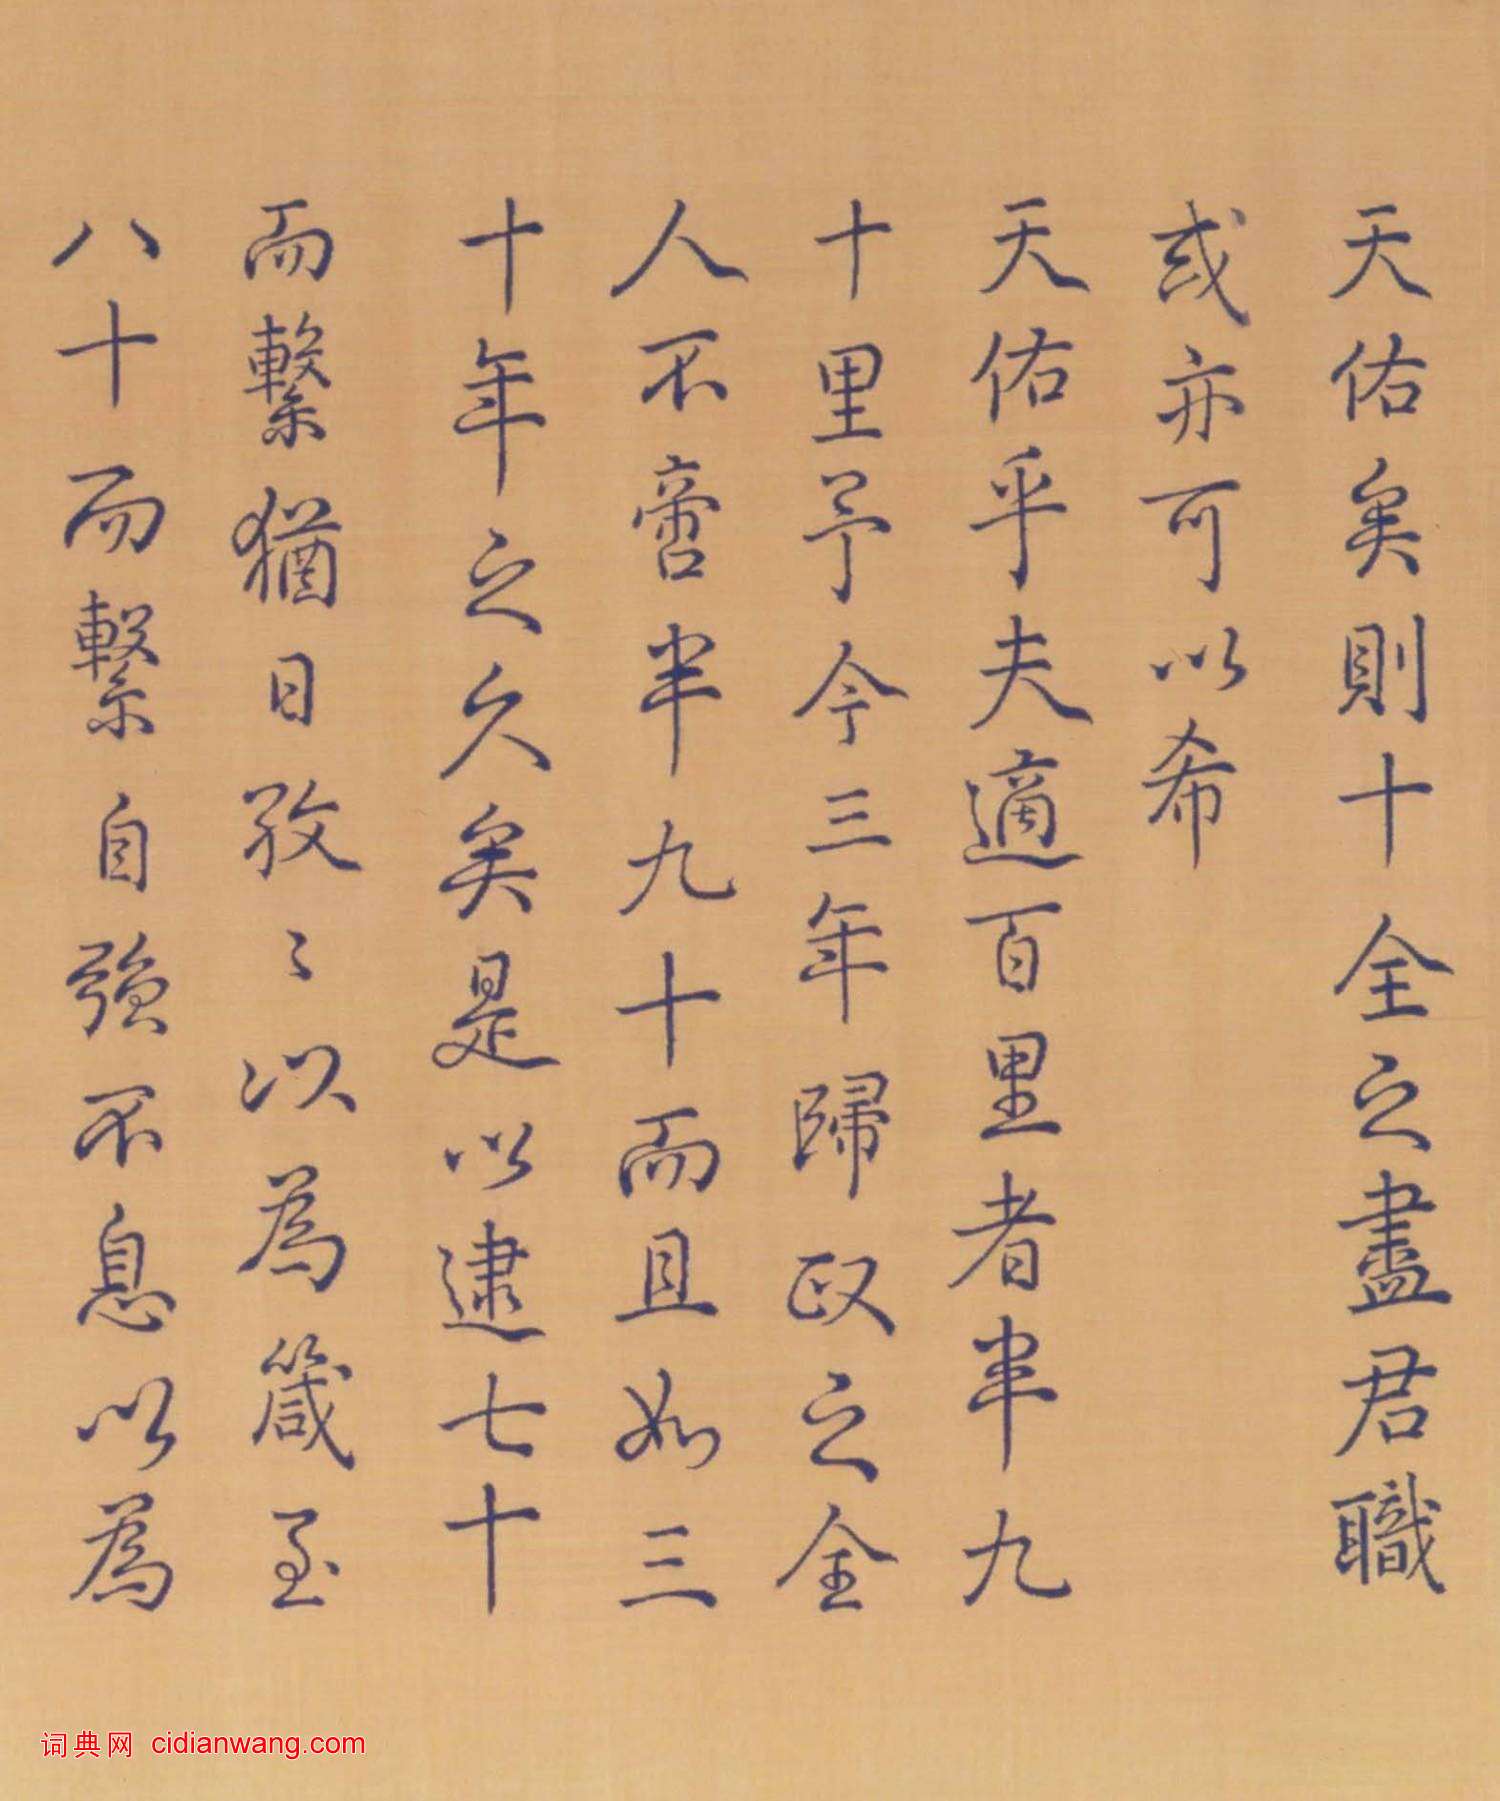 天佑矣則十全之盡君職
或亦可以希
天佑乎夫適百里者半九
十里予今三年歸政之全
人不啻半九十而且如三
十年之久矣是以逮七十
而繫猶日孜〻以為箴至
八十而繫自强不息以為
词典网 cidianwang.com